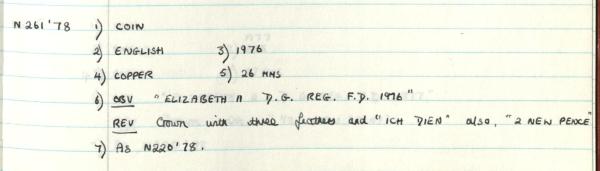 N261'78 1) COIN
2) ENGLISH 3) 1976
4) COPPER 5) 26 MMS
6) OBV "ELIZABETH II D.G. REG. F.D. 1976"
REV Crown with three feathers and "ICH DIEN" also, "2 NEW PENCE"
7) AS N220'78.